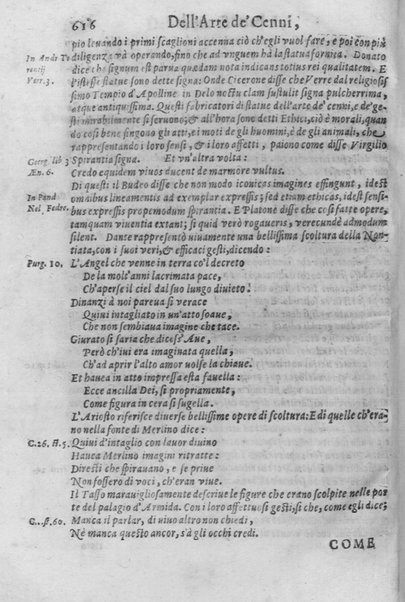 616 Dell'Arte de' Cenni,
pio leuando i primi scaglioni accenna ciò ch'egli vuol fare, e poi con più
In Andr Te diligenza và operando, fino che ad vnguem hà la statua fornica. Donato
rentij dice che signum est parua quædam nota indicans totius rei qualitatem. E
Verr. 3. l'istesse statue sono dette signa: Onde Cicerone disse che Verre dal religiosis
simo Tempio d'Apolline in Delo noctu clam sustulit signa pulcherrima,
atque antiquissima. Questi fabricatori di statue dell'arte de' cenni, e de' ge-
sti mirabilmente si seruono; & all'hora sono detti Ethici, ciò è morali, quan
do così bene fingono gli atti, ei moti de gli huomini, è de gli animali, che
rappresentando i loro sensi, & i loro affetti, paiono come disse Virgilio
Georg. lib 3 Spirantia signa. Et vn'altra volta:
Æn. 6. Credo equidem viuos ducent de marmore vultus.
Di questi il Budeo disse che non modo iconicas imagines effingunt, idest
In Pand omnibus lineamentis ad exemplar expressis; sed etiam ethicas, idest sensi-
Nel Fedro. bus expressis propemodum spirantia. E Platone disse che cosi fatte opere,
tamquam viuentia extant; si quid verò rogaueris, verecundè admodum
silent. Dante rappresentò viuamente una bellissima scoltura della Non-
tiata, con i suoi veri, & efficaci gesti, dicendo:
Purg. 10. L'Angel che venne in terra co'l decreto
De la molt'anni lacrimata pace,
Ch'aperse il ciel dal suo lungo diuieto!
Dinanzi à noi pareua sì verace
Quiui intagliato in un'atto soaue,
Che non sembiaua imagine che tace.
Giurato si saria che dicess'Aue,
Però ch'iui era imaginata quella,
Ch'ad aprir l'alto amor volse la chiaue.
Et hauea in atto impressa esta fauella:
Ecce ancilla Dei, sì propriamente,
Come figura in cera si sugella.
L'Ariosto riferisce diuerse bellissime opere di scoltura: E di quelle ch'era-
no nella fonte di Merlino dice:
C.26. st.5. Quiui d'intaglio con lauor diuino
Hauea Merlino imagini ritratte:
Diresti che spirauano, e se priue
Non fossero di voci, ch'eran viue.
Il Tasso marauigliosamente descriue le figure che erano scolpite nelle por
te del palagio d'Armida. Con i loro affettuosi gesti, sì che, come egli dice;
st. 60. Manca il parlar, di viuo altro non chiedi,
Nè manca questo ancor, s'à gli occhi credi.
COME